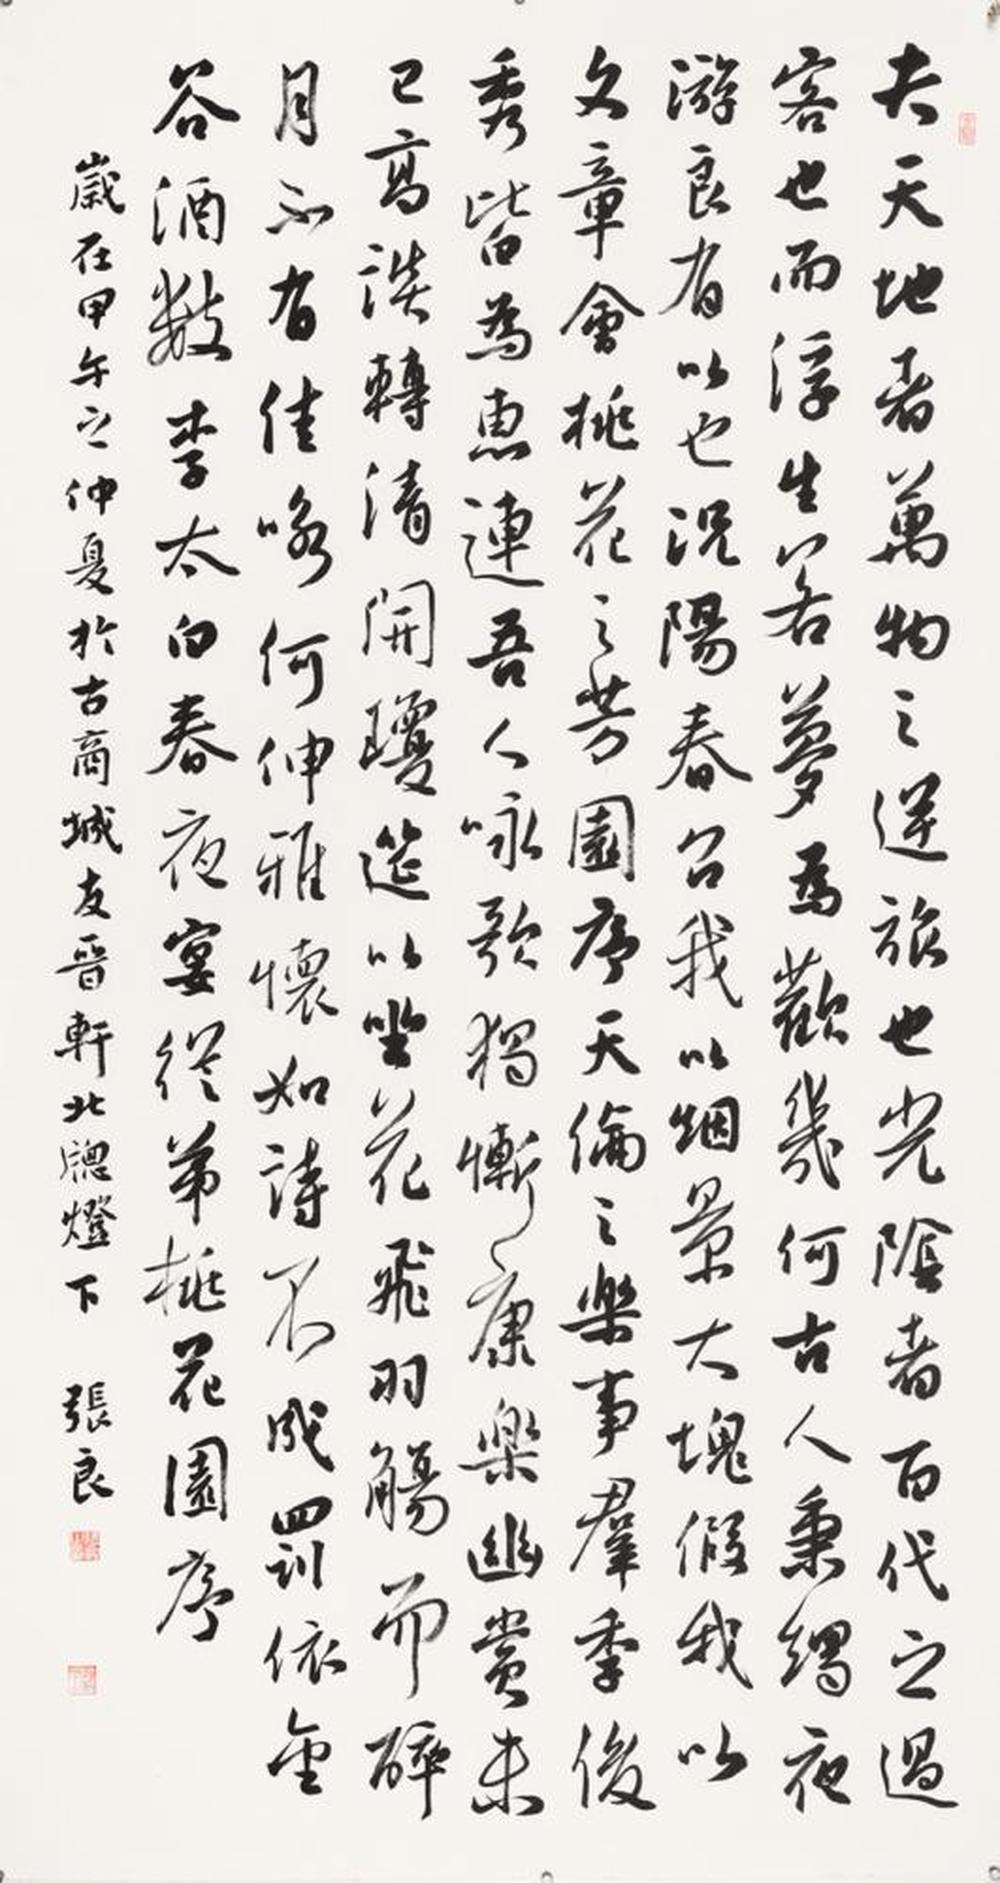 夫天地者萬物之逆旅也光陰者百代之過
客也而浮生若夢為歡幾何古人秉燭夜
游良有以也況陽春召我以烟景大塊假我以
文章會桃花之芳園序天倫之樂事羣季俊
秀皆為惠連吾人咏歌獨慚康樂幽賞未
已高談轉清開瓊筵以坐花飛羽觴而醉
月不有佳咏何伸雅懷如詩不成罰依金
谷酒數李太白春夜宴從弟桃花園序
歲在甲午之仲夏於古商城友晉軒北牕燈下 張良